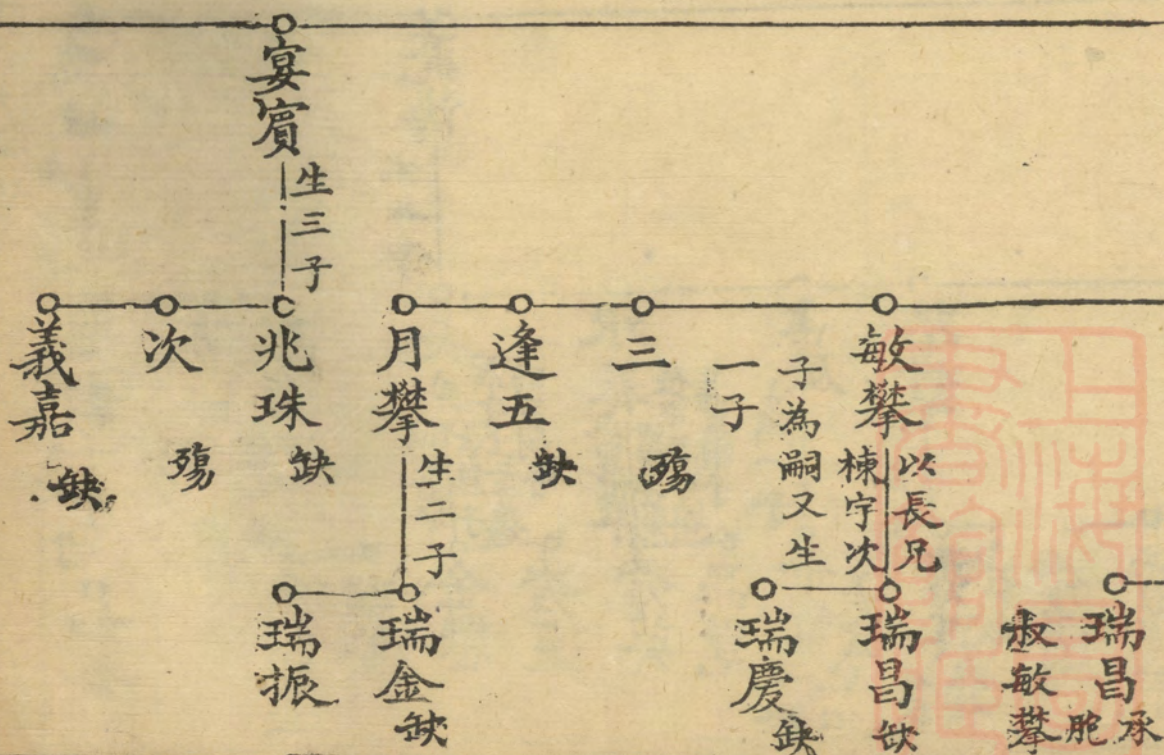 宴賓
生三子
敏攀
以長兄
棟宇次
子為嗣又生
一子
三
殤
逢五
缺
月攀
生二子
兆珠
缺
次
殤
義嘉
缺
瑞昌承
胞
叔敏攀
瑞昌
缺
瑞慶
缺
瑞金
缺
瑞振